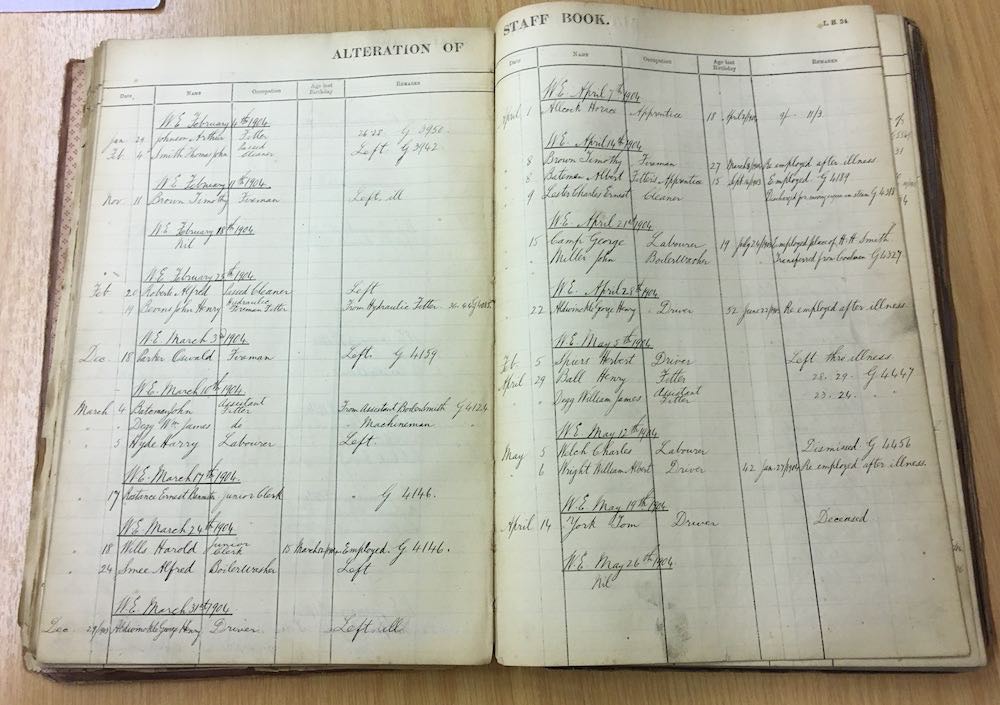 ALTERATION OF
Date Name Occupation Age last Birthday Remarks
W.E. February 4th 1904
Jan 29 Johnson Arthur Fitter 26 28 G 3950
Feb. 4 Smith Thomas John Passed Cleaner Left G 3942
W.E. February 11th 1904
Nov. 11 Brown Timothy Fireman Left, ill
W.E. February 18th 1904
Nil
W.E. February 25th 1904
Feb 20 Roberts Alfred Passed Cleaner Left
" 19 John Henry Hydraulic Fireman Fitter From Hydraulic Fitter
W.E. March 3rd 1904
Dec. 18 Parker Oswald Fireman Left. G 4159
W.E. March 10th 1904
March 4 Bateman John Assistant Fitter From Assistant Boilersmith G 4124
" " Degg Wm James do " Machineman
" 5 Hyde Harry Labourer Left.
W.E. March 17th 1904
" 17 Ernest Junior Clerk " G 4146.
W.E. March 24th 1904
" 18 Wills Harold Junior Clerk 15 Employed. G 4146.
" 24 Smee Alfred Boilerwasher Left
W.E. March 31st 1904
Dec 29/1903 George Henry Driver Left ill
STAFF BOOK.
L. H. 24
Date Name Occupation Age last Birthday Remarks
W.E. April 7th 1904
April 1 Allcock Horace Apprentice 18 9/- 11/3.
W.E. April 14th 1904
8 Brown Timothy Fireman 27 Re employed after illness.
8 Bateman Albert Fitters Apprentice 15 Employed. G 4189
9 Lester Charles Ernest Cleaner
W.E. April 21st 1904
15 Camp George Labourer 19 Employed place of H. H. Smith
" Miller John Boilerwasher Transferred from Goodman G 4327
W.E. April 28th 1904
22 George Henry Driver 52 Re employed after illness
W.E. May 5th 1904
Feb 5 Spiers Herbert Driver Left thro illness
April 29 Ball Henry Fitter 28. 29. G 4447
" Degg William James Assistant Fitter 23. 24.
W.E. May 12th 1904
May 5 Welch Charles Labourer Dismissed. G 4456
6 Wright William Albert Driver 42 Re employed after illness.
W.E. May 19th 1904
April 14 York Tom Driver Deceased
W.E. May 26th 1904
Nil